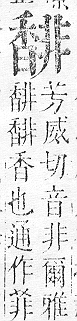 馡
芳威切音非爾雅
馡馡香也通作菲